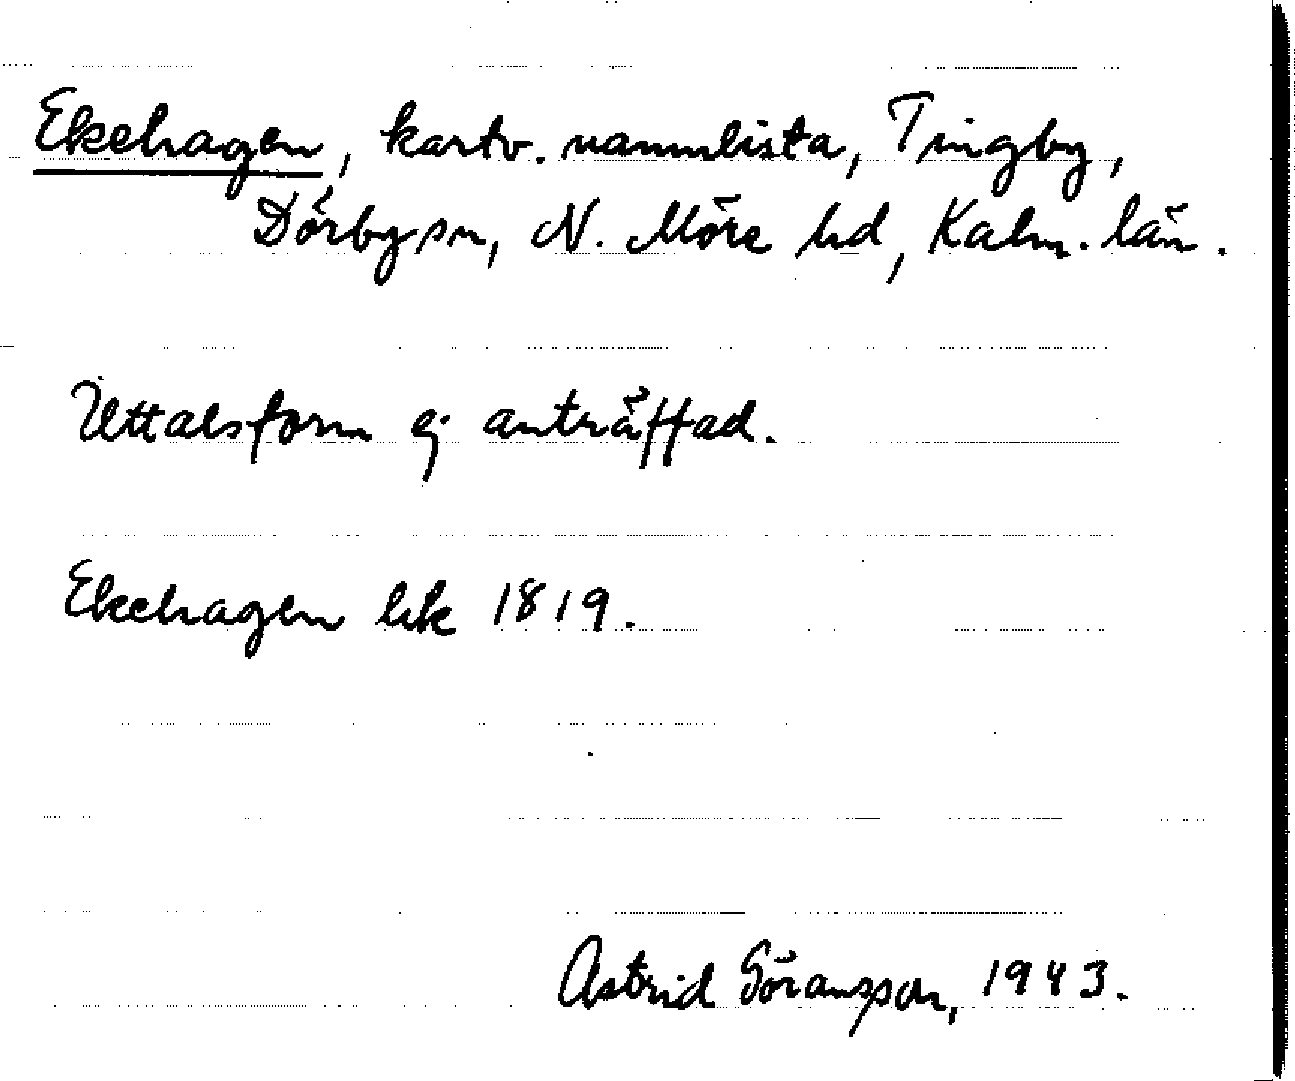 Ekehagen, kartv. namnlista, Tingby,
Dörby sn, N. Möre hd, Kalm. län.
Uttalsform ej anträffad.
Ekehagen lsk 1819.
Astrid Göransson, 1943.